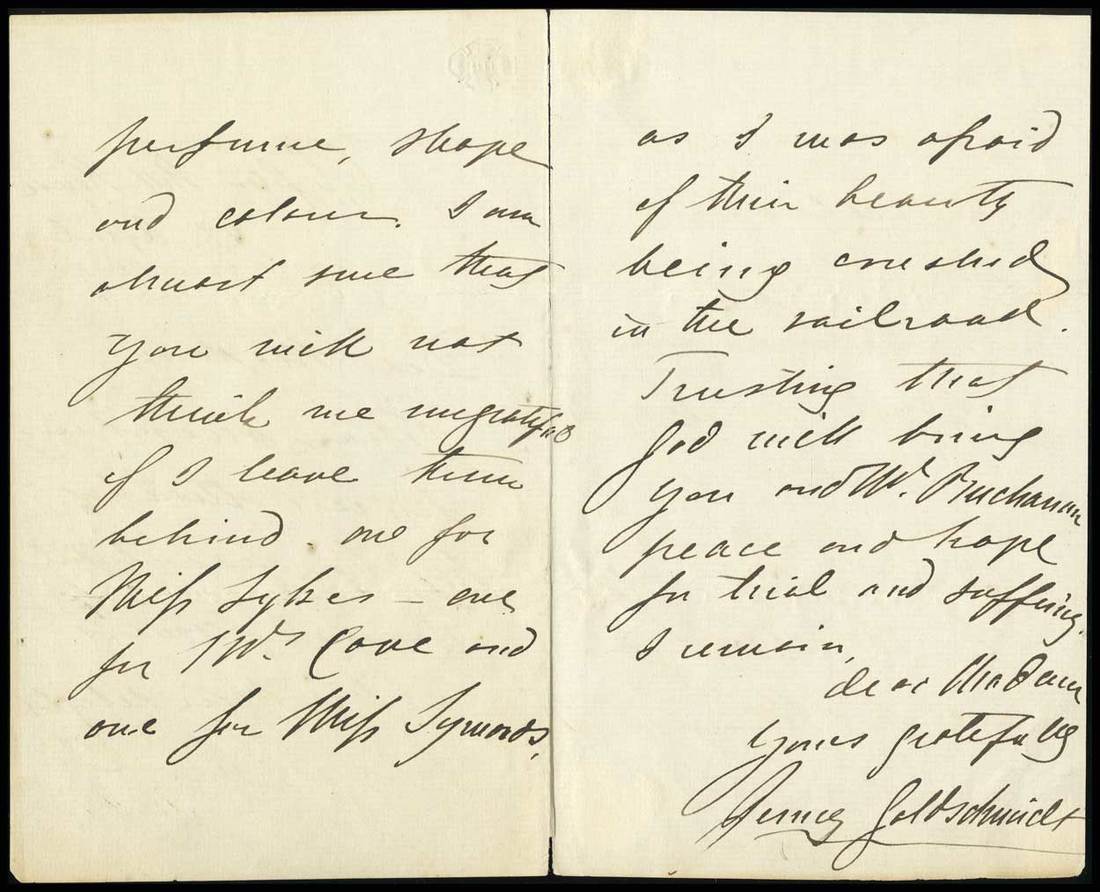 perfume, shape
and colour. I am
almost sure that
you will not
think me ungrateful
if I leave them
behind one for
Miss Sykes – one
for Mrs. and
one for Miss Symonds,
as I was afraid
of their beauty
being crushed
in the railroad.
Trusting that
God will bring
you and Mr. Buchanan
peace and hope
for trial and suffering.
I remain,
dear Madam
yours gratefully
Jenny Goldschmidt